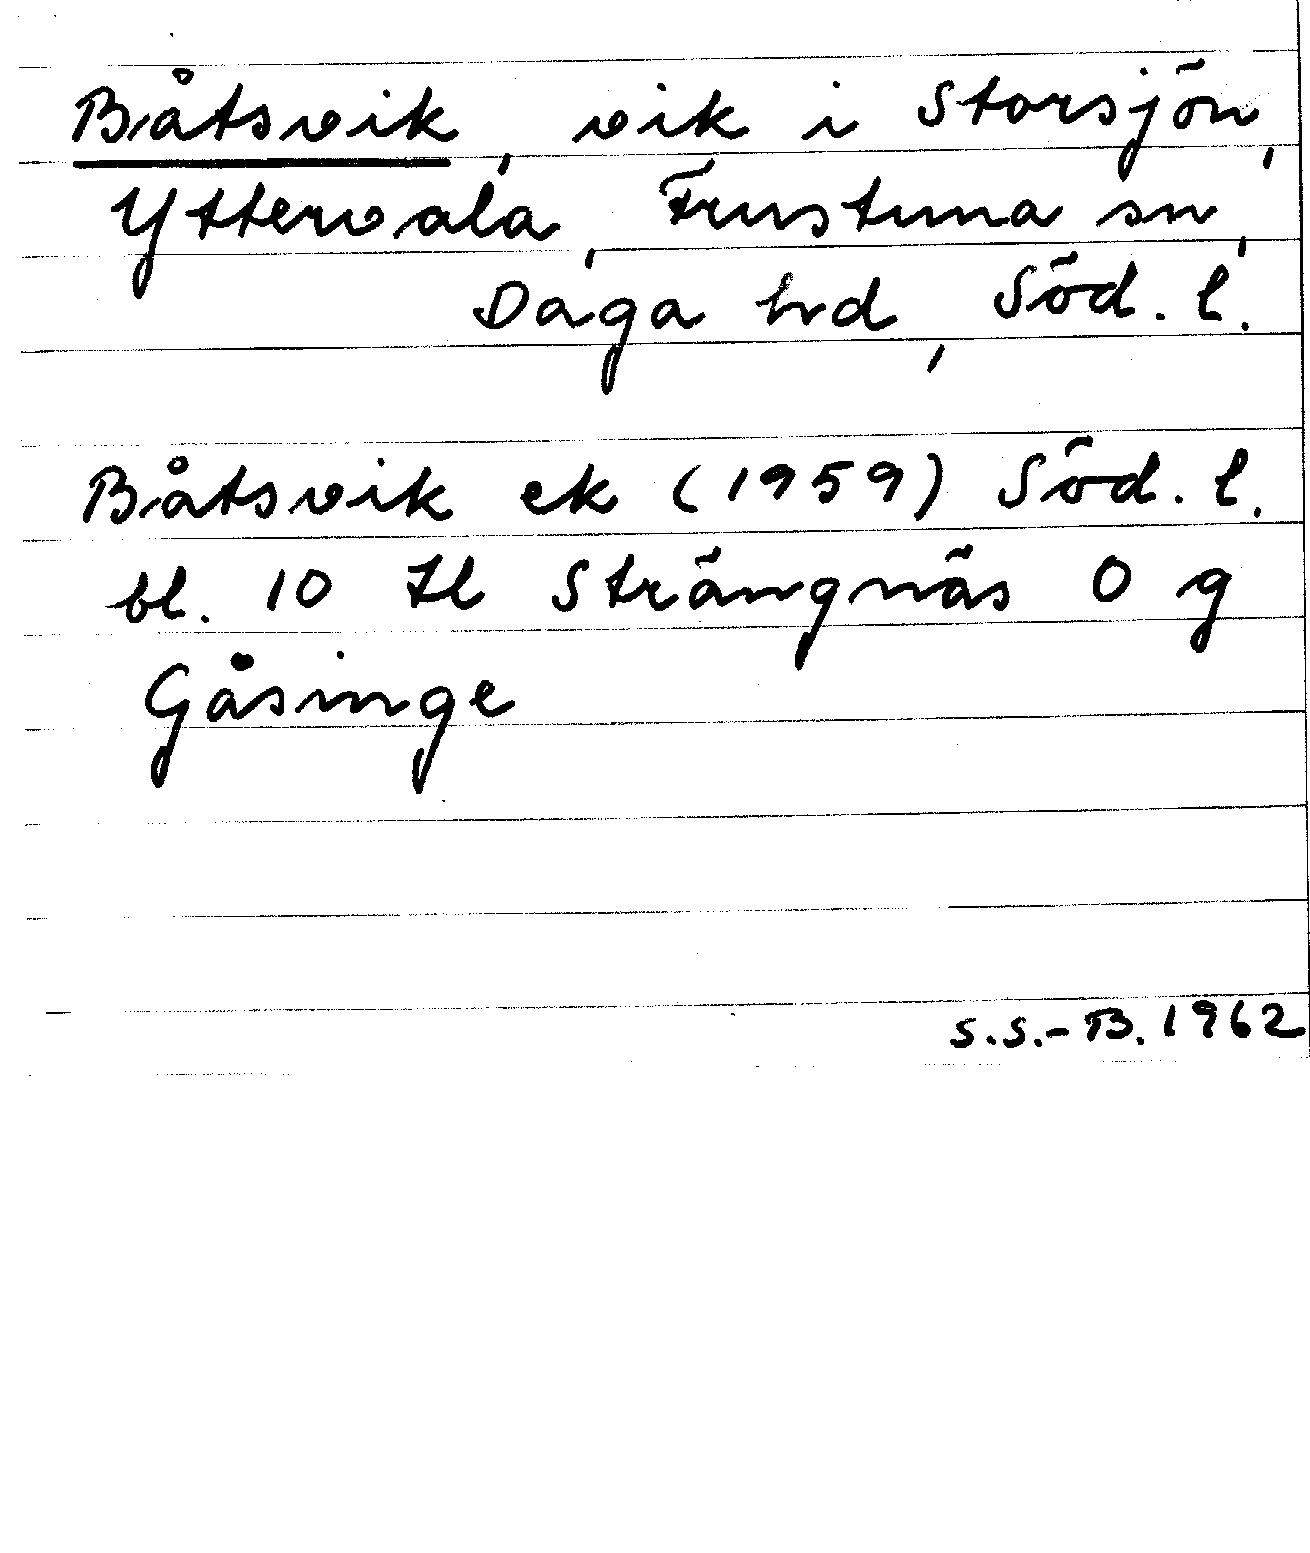 Båtsvik, vik i Storsjön,
Yttervala, Frustuna sn,
Daga hd, Söd. l.
Båtsvik ek (1959) Söd. l.
bl. 10 tl Strängnäs O g
Gåsinge
S.S.-B. 1962